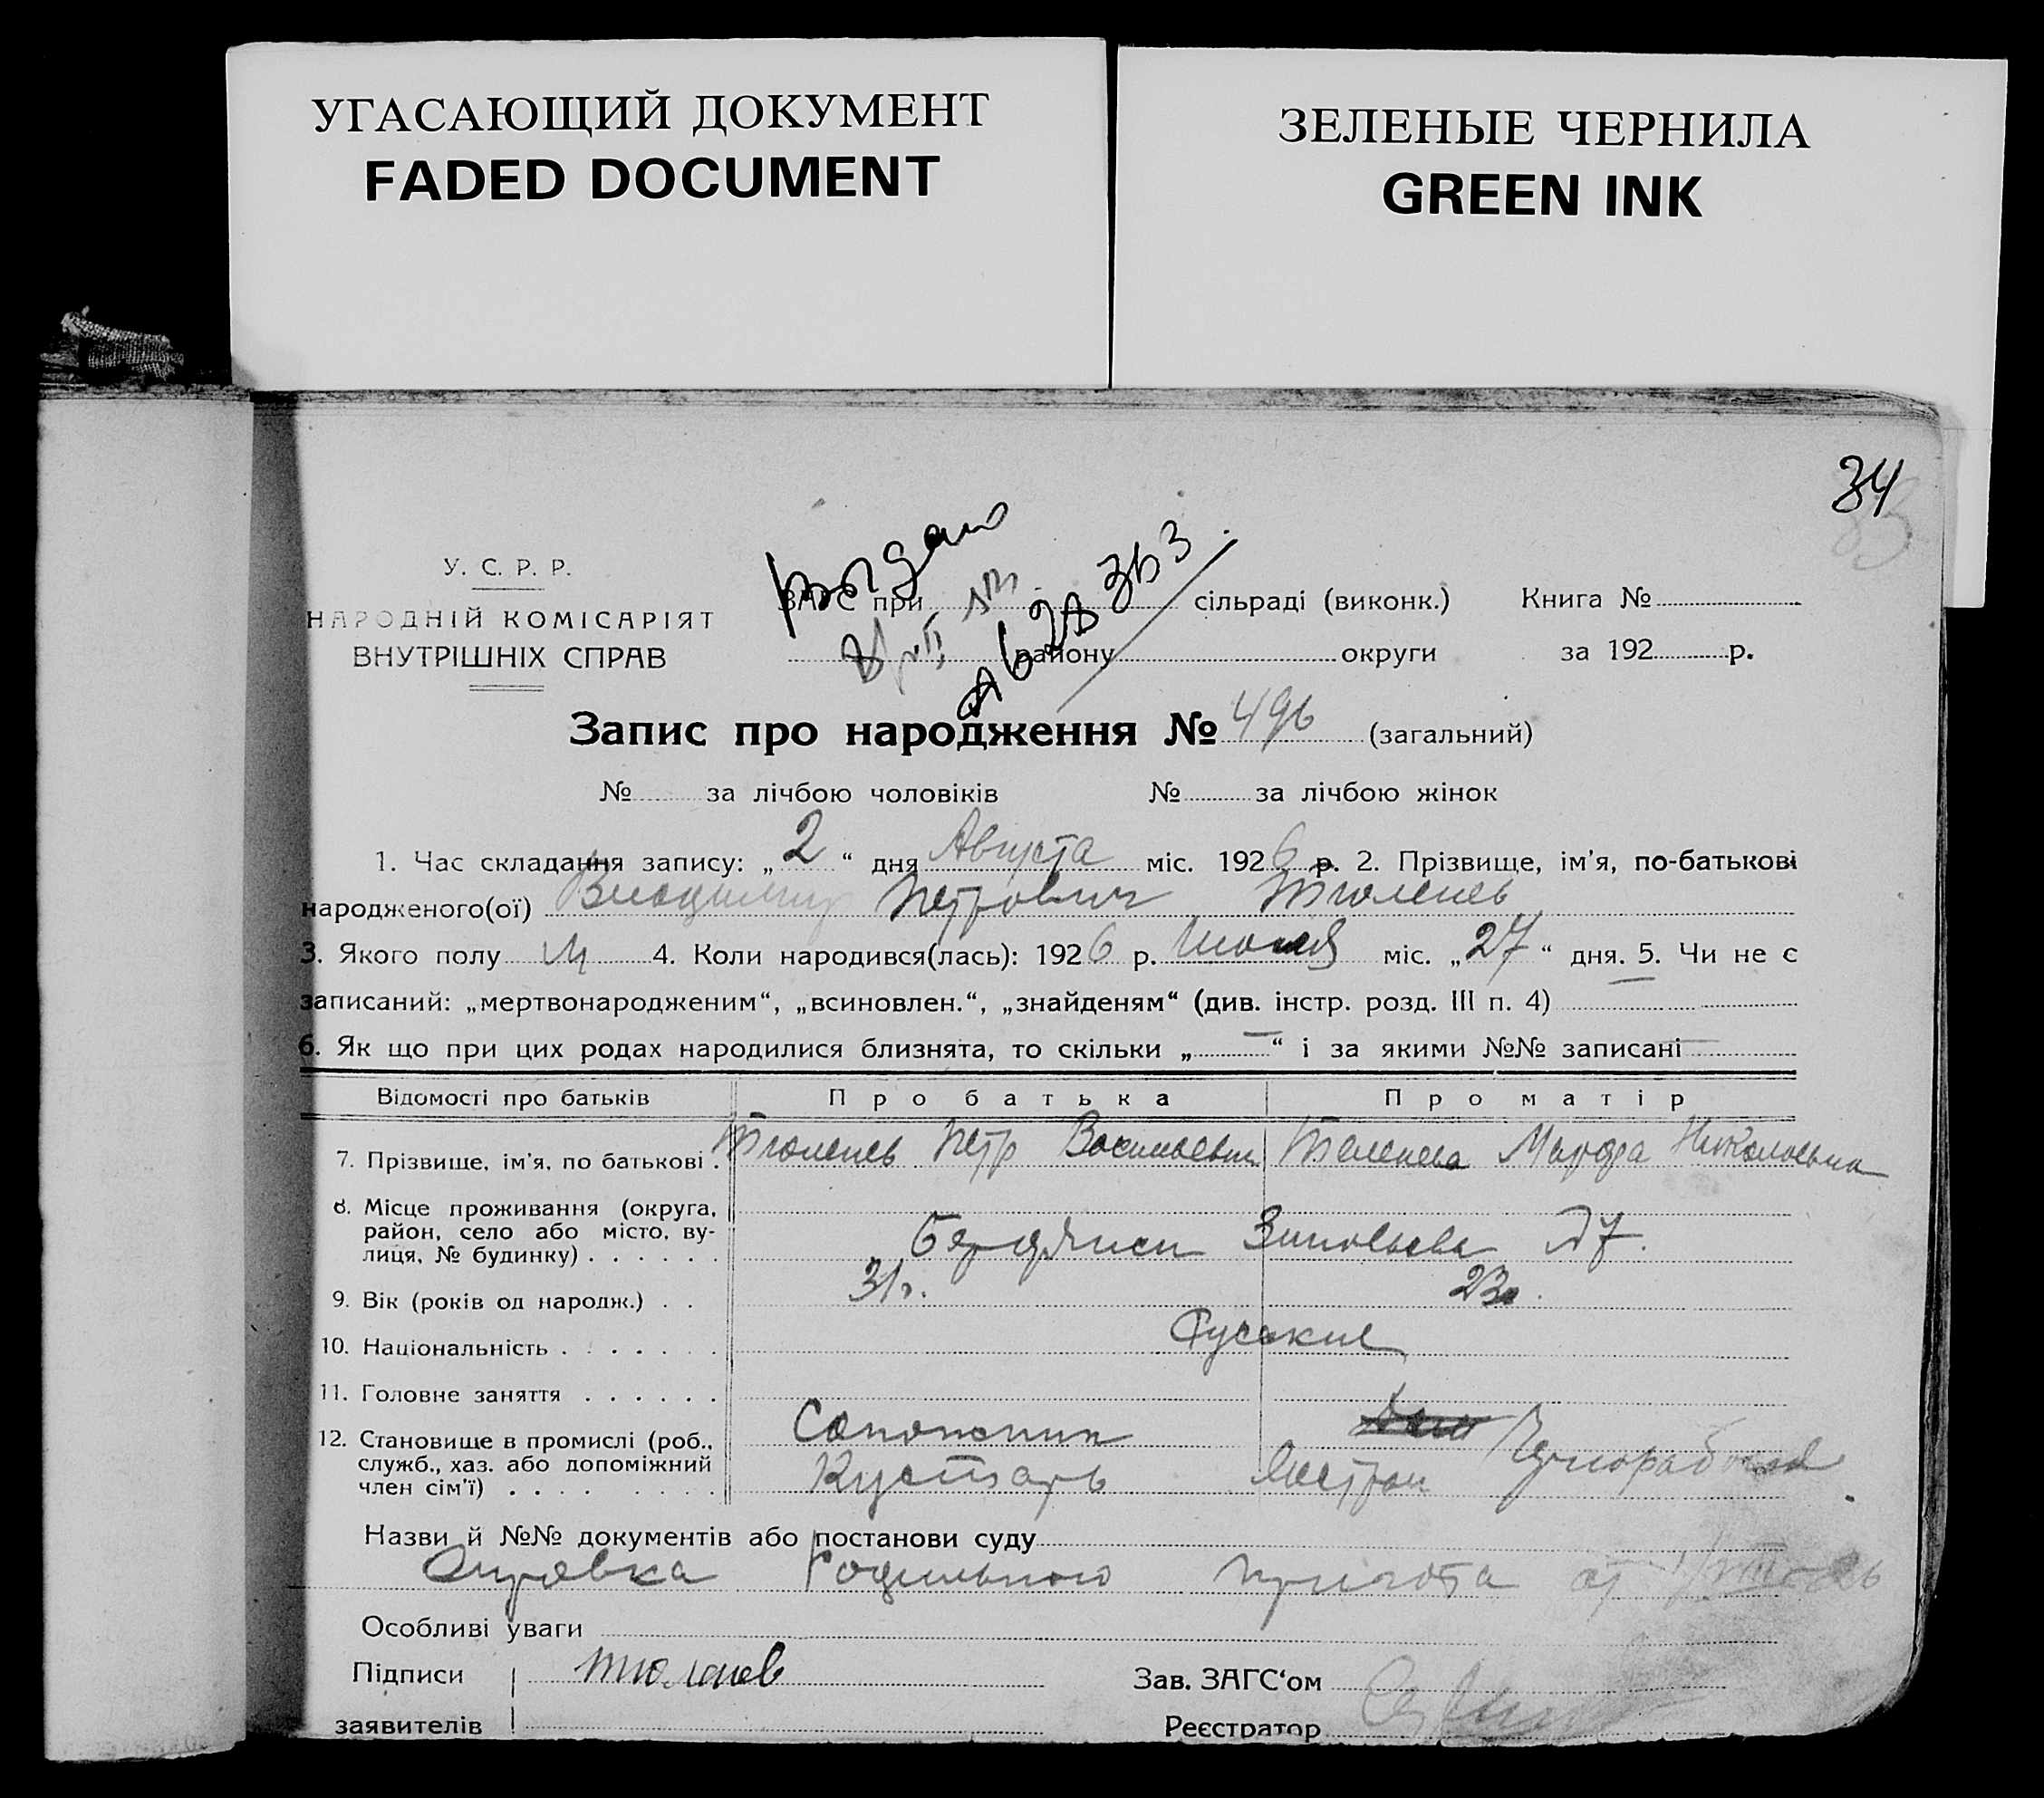 УГАСАЮЩИЙ ДОКУМЕНТ
FADED DOCUMENT
ЗЕЛЕНЫЕ ЧЕРНИЛА
GREEN INK
34
У. С. Р. Р.
НАРОДНІЙ КОМІСАРІЯТ
ВНУТРІШНІХ СПРАВ
Выдано
ЗАГС при сільраді (виконк.) Книга №
району округи за 192 р.
Запис про народження № 496 (загальний)
№ за лічбою чоловіків № за лічбою жінок
1. Час складання запису: „ 2 “ дня Августа міс. 1926 р. 2. Прізвище, ім’я, по-батькові
народженого(ої) Владимир Петрович Тюленев
3. Якого полу М 4. Коли народився(лась): 1926 р. Июля міс. „27“ дня. 5. Чи не є
записаний: „мертвонародженим“, „всиновлен.“, „знайденям“ (див. інстр. розд. III п. 4)
6. Як що при цих родах народилися близнята, то скільки „ — “ і за якими №№ записані —
Відомості про батьків Про батька Про матір
7. Прізвище, ім’я, по батькові . Тюленев Петр Васильевич Тюленева Марфа Николаевна
8. Місце проживання (округа,
район, село або місто, ву-
лиця, № будинку) . . . . . . Бердянск Зиновьева 7.
9. Вік (років од народж.) . . 31 г. 23
10. Національність . . . . . . . Русские
11. Головне заняття . . . . . .
12. Становище в промислі (роб.,
служб., хаз. або допоміжний
член сім’ї) . . . . . . . . . Сапожник
Кустарь Чернорабочая
Назви й №№ документів або постанови суду
Справка Родильного приюта от
Особливі уваги
Підписи Тюленев Зав. ЗАГС‘ом
заявителів Реєстратор